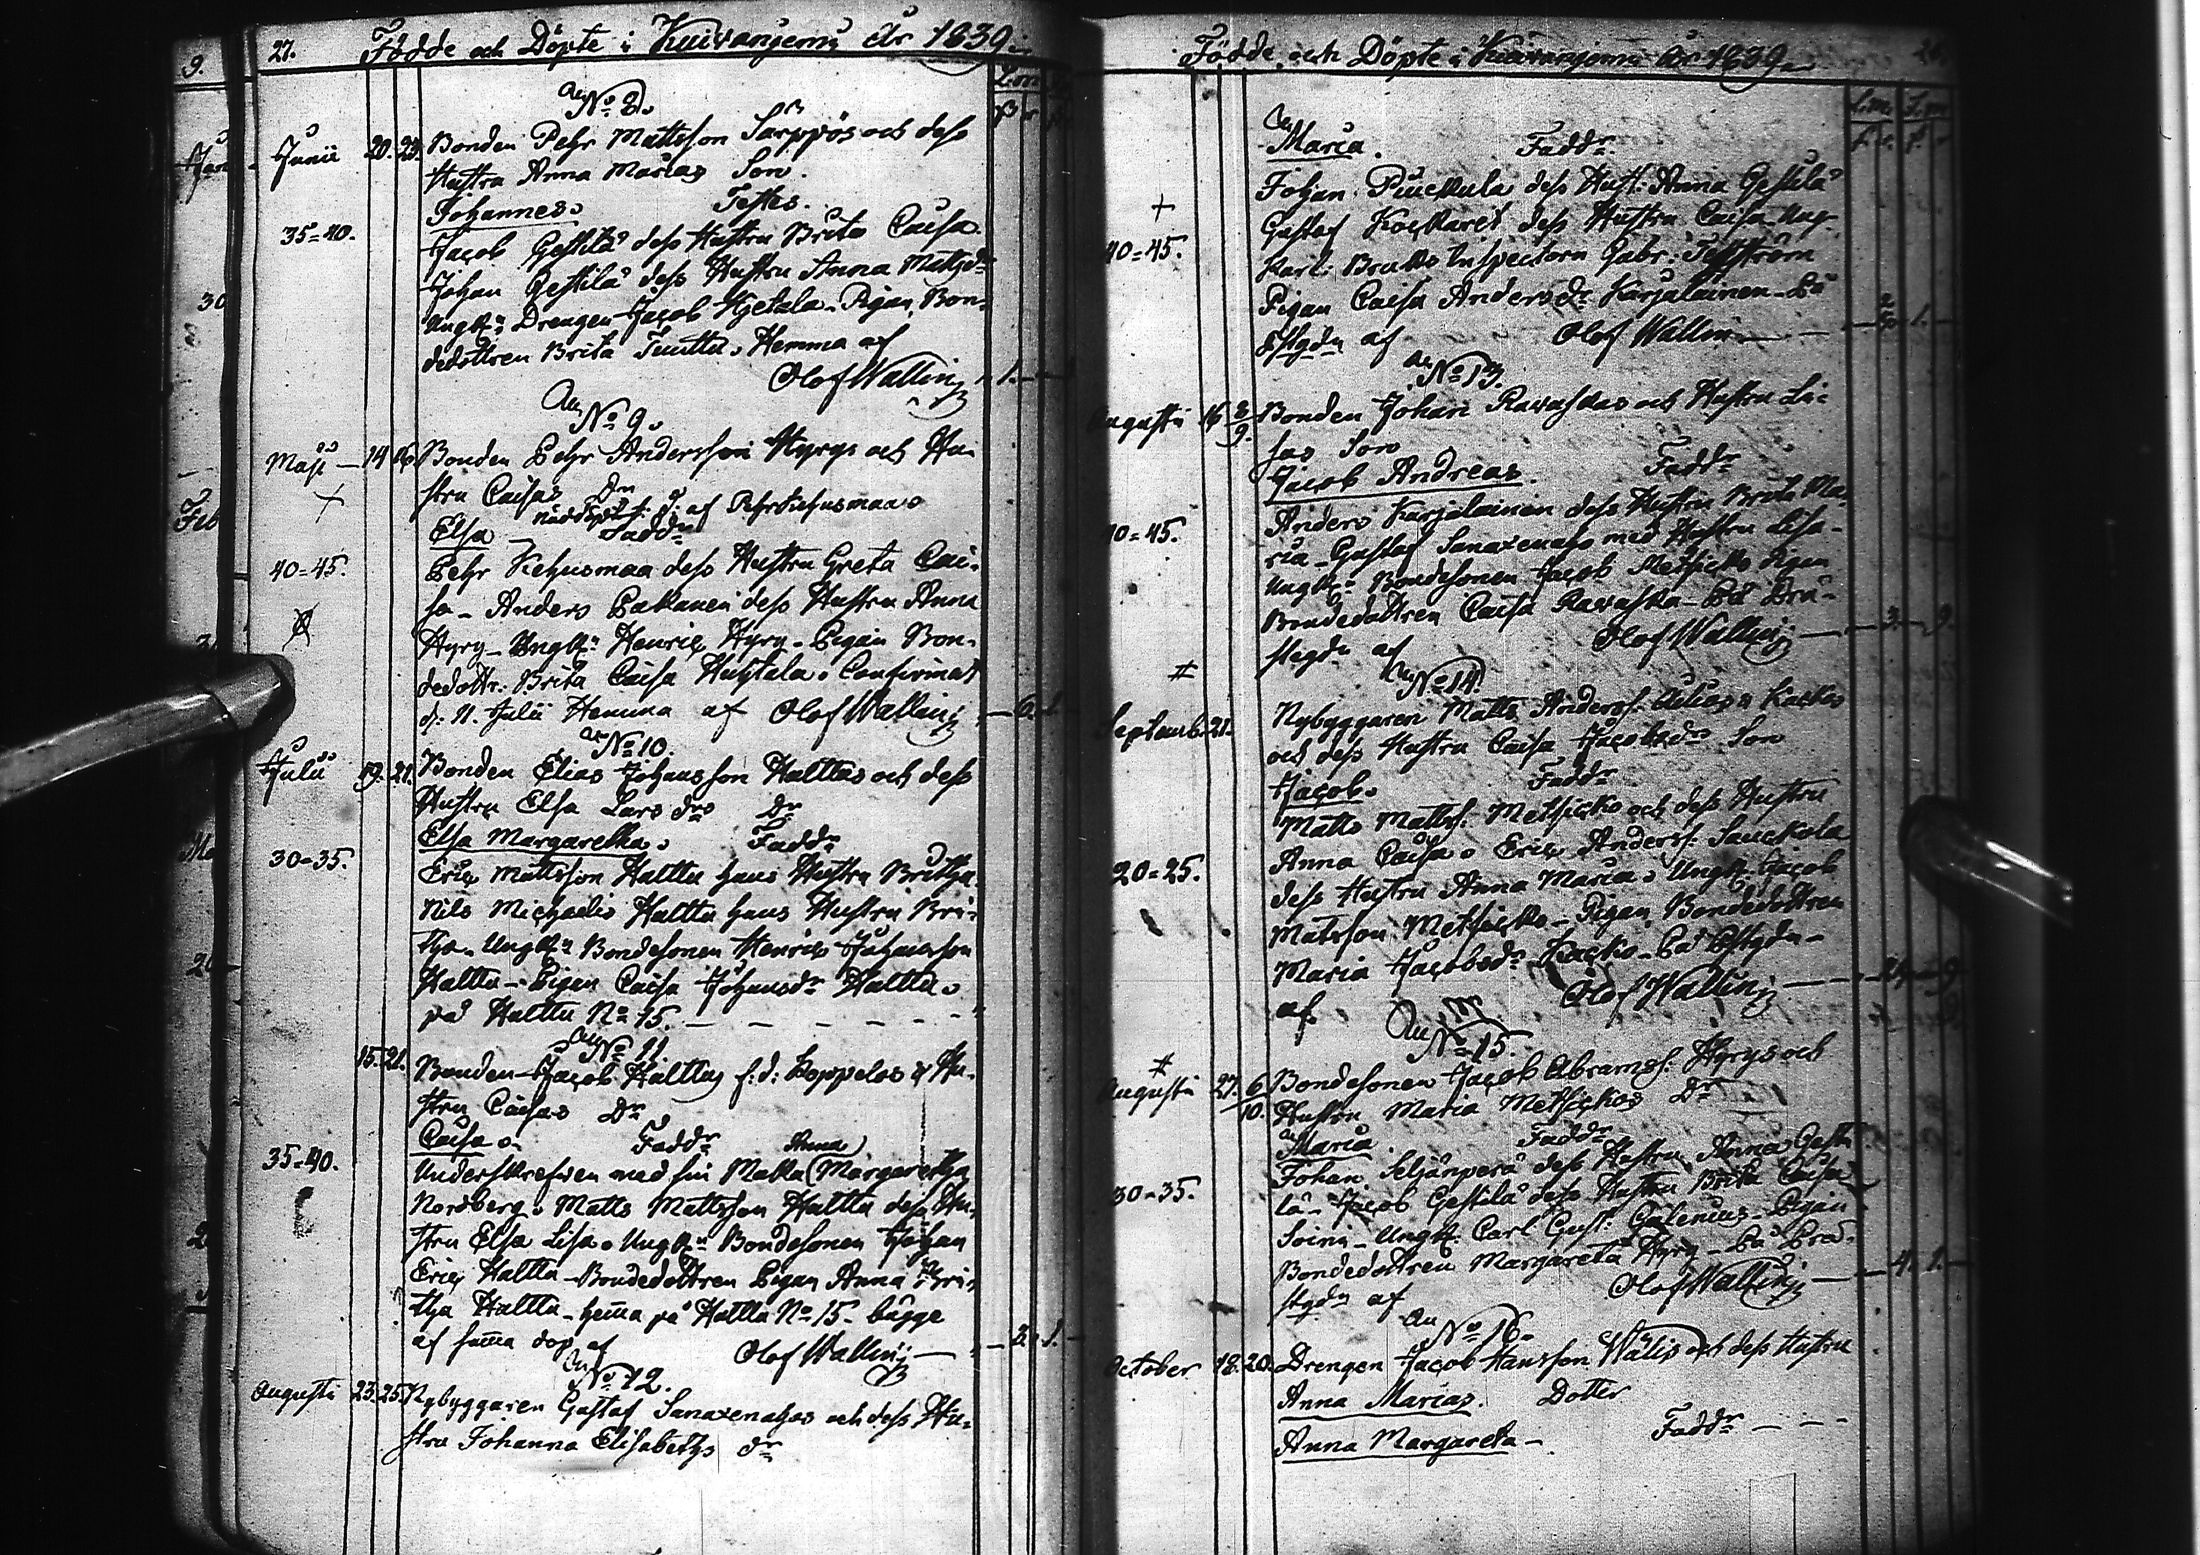 27. Födde och Döpte i Kuivaniemi år 1839.
No 8.
Junii 20. 23. Bonden Pehr Mattsson Sarppös och dess
Hustru Anna Marias Son.
Johannes. Testes.
35=40.
Jacob Gestilä dess Hustru Brita Caisa.
Johan Gestilä dess Hustru Anna Mattsdr
Ungk: Drengen Jacob Hietala. Pigan, Bon-
dedottren Brita Tuuttu. Hemma af
Olof Wallin 1.
No 9.
Maji 14 16 Bonden Pehr Andersson Hyrys och Hu-
stru Caisas Dr
nöddöpt af Pehr Kehusmaa
Elsa Faddr
40=45.
Pehr Kehusmaa dess Hustru Greta Cai-
sa - Anders Pakanen dess Hustru Anna
Hyry - Ungk: Henric Hyry - Pigan Bon-
dedottr: Brita Caisa Huhtala. Confirmat
d: 11. Julii Hemma af Olof Wallin 6.
No 10.
Julii 19. 21. Bonden Elias Johansson Halttas och dess
Hustru Elsa Lars drs Dr
Elsa Margaretha. Faddr
30=35.
Eric Mattsson Halttu hans Hustru Britha
Nils Michaelis Halttu hans Hustru Bri-
tha - Ungk: Bondesonen Henric Johansson
Halttu - Pigen Caisa Johansdr Halttu.
på Halttu No 15.
No 11.
15. 21. Bonden Jacob Halttus f: d: Koppelos & Hu-
stru Caisas Dr
Caisa. Faddr Anna
35=40.
Underskrefven med sin Maka Margaretha
Nordberg. Matts Mattsson Halttu dess Hu-
stru Elsa Lisa. Ungk: Bondesonen Johan
Eric Halttu - Bondedottren Pigan Anna Bri-
tha Halttu - hema på Halttu No 15 - bägge
af sama dop af Olof Wallin 3. 1.
No 12.
Augusti 23. 25. Nybyggaren Gustaf Sanaxenahos och dess Hu-
stru Johanna Elisabeths dr
Födde och Döpte i Kuivaniemi år 1839
Maria. Faddr
Johan dess Hust: Anna Gestilä
Gustaf dess Hustru Caisa Ung-
40=45.
karl: Bruks Inspectorn Gabr:
Pigan Caisa Andersdr Karjalainen - På
Pstgdn af Olof Wallin 1.
No 13.
Augusti 16 8/9. Bonden Johan Ravaskas och Hustru Li-
sas Son
Jacob Andreas. Faddr
40=45.
Anders Karjalainen dess Hustru Brita Ma-
ria - Gustaf Sanaxenaho med Hustru Lisa -
Ungk: Bondesonen Jacob Metsicko Pigan
Bondedottren Caisa Ravaska - På Prä-
stegdn af Olof Wallin 3. 9.
No 14.
Septemb. 21. Nybyggaren Matts Anderss:
och dess Hustru Caisa Jacobsdrs Son
Jacob. Faddr
Matts Mattss: Metsicko och dess Hustru
20=25.
Anna Caisa. Eric Anderss: Sauckola
dess Hustru Anna Maria. Ungk: Jacob
Matsson Metsicko - Pigan Bondedottren
Maria Jacobsdr Kacko - På Pstgdn -
af. Olof Wallin 24 9
No 15.
Augusti 27. 6/10. Bondesonen Jacob Abramss: Hyrys och
Hustru Maria Metsickos Dr
Maria Faddr
30=35.
Johan Seljänperä dess Hustru Anna Gesti-
lä - Jacob Gestilä dess Hustru Brita Caisa
Soini - Ungk: Carl Gust: Galenius - Pigan
Bondedottren Margareta Hyry - På Prä-
stgdn af Olof Wallin 4. 1.
No 16.
October 18. 20. Drengen Jacob Hansson Wälis och dess Hustru
Anna Marias. Dotter
Anna Margareta - Faddr